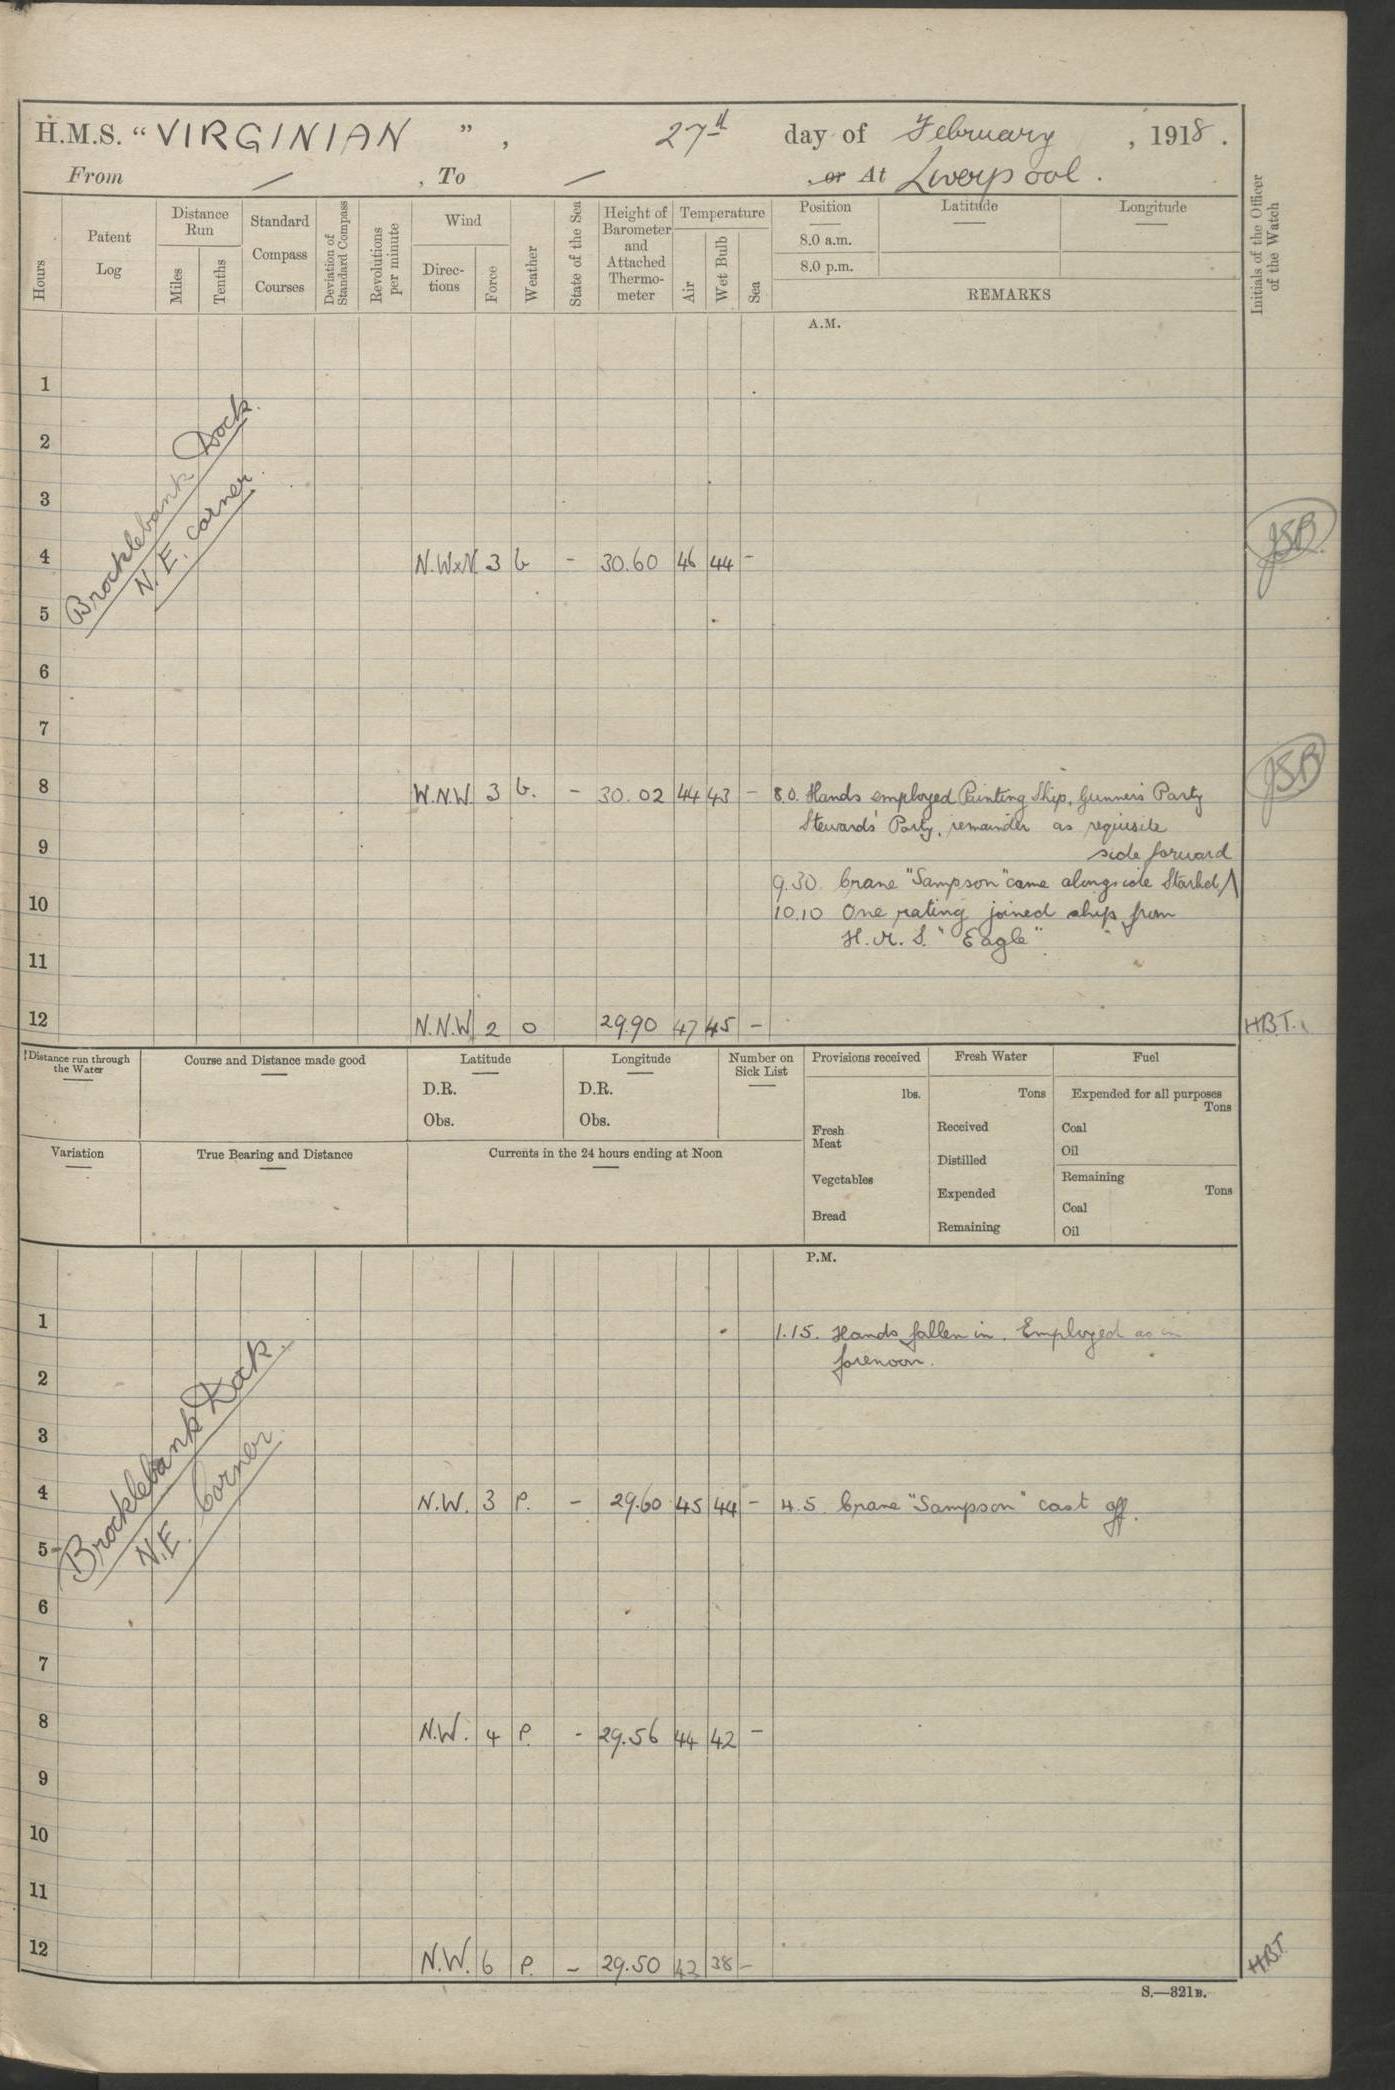 H.M.S. "VIRGINIAN", 27th day of February, 1918.
From — , To — , or At Liverpool.
Hours
Patent Log
Distance Run
Miles
Tenths
Standard Compass Courses
Deviation of Standard Compass
Revolutions per minute
Wind
Direc-tions
Force
Weather
State of the Sea
Height of Barometer and Attached Thermo-meter
Temperature
Air
Wet Bulb
Sea
Position
8.0 a.m.
8.0 p.m.
Latitude
Longitude
REMARKS
Initials of the Officer of the Watch
A.M.
1
2
3
Brocklebank Dock.
N.E. corner.
4 N.WxN. 3 b - 30.60 46 44 - JSB.
5
6
7
8 W.N.W. 3 b. - 30.02 44 43 - 8.0. Hands employed Painting Ship, Gunner's Party JSB
Stewards' Party, remainder as requisite
9
side forward
9.30. Crane "Sampson" came alongside Starbd. ⋀
10 10.10 One rating joined ship from
H.M.S. "Eagle".
11
12 N.N.W. 2 o 29.90 47 45 - HBT.
Distance run through the Water
Course and Distance made good
Latitude
D.R.
Obs.
Longitude
D.R.
Obs.
Number on Sick List
Provisions received
lbs.
Fresh Meat
Vegetables
Bread
Fresh Water
Tons
Received
Distilled
Expended
Remaining
Fuel
Expended for all purposes
Tons
Coal
Oil
Remaining
Tons
Coal
Oil
Variation
True Bearing and Distance
Currents in the 24 hours ending at Noon
P.M.
1 1.15. Hands fallen in. Employed as in
forenoon.
2
3
Brocklebank Dock.
N.E. Corner.
4 N.W. 3 P. - 29.60 45 44 - 4.5 Crane "Sampson" cast off.
5
6
7
8 N.W. 4 P. - 29.56 44 42 -
9
10
11
12 N.W. 6 P. - 29.50 42 38 - HBT
S.—321B.